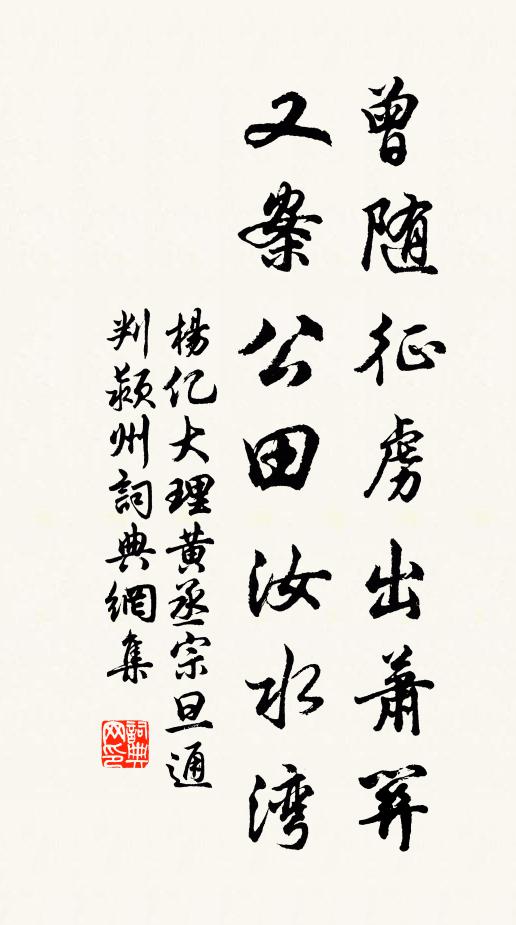 曾随征虏出蕭関
又案公田汝水湾
楊亿大理黄丞宗旦通
判颍州詞典網集
詞典
网印